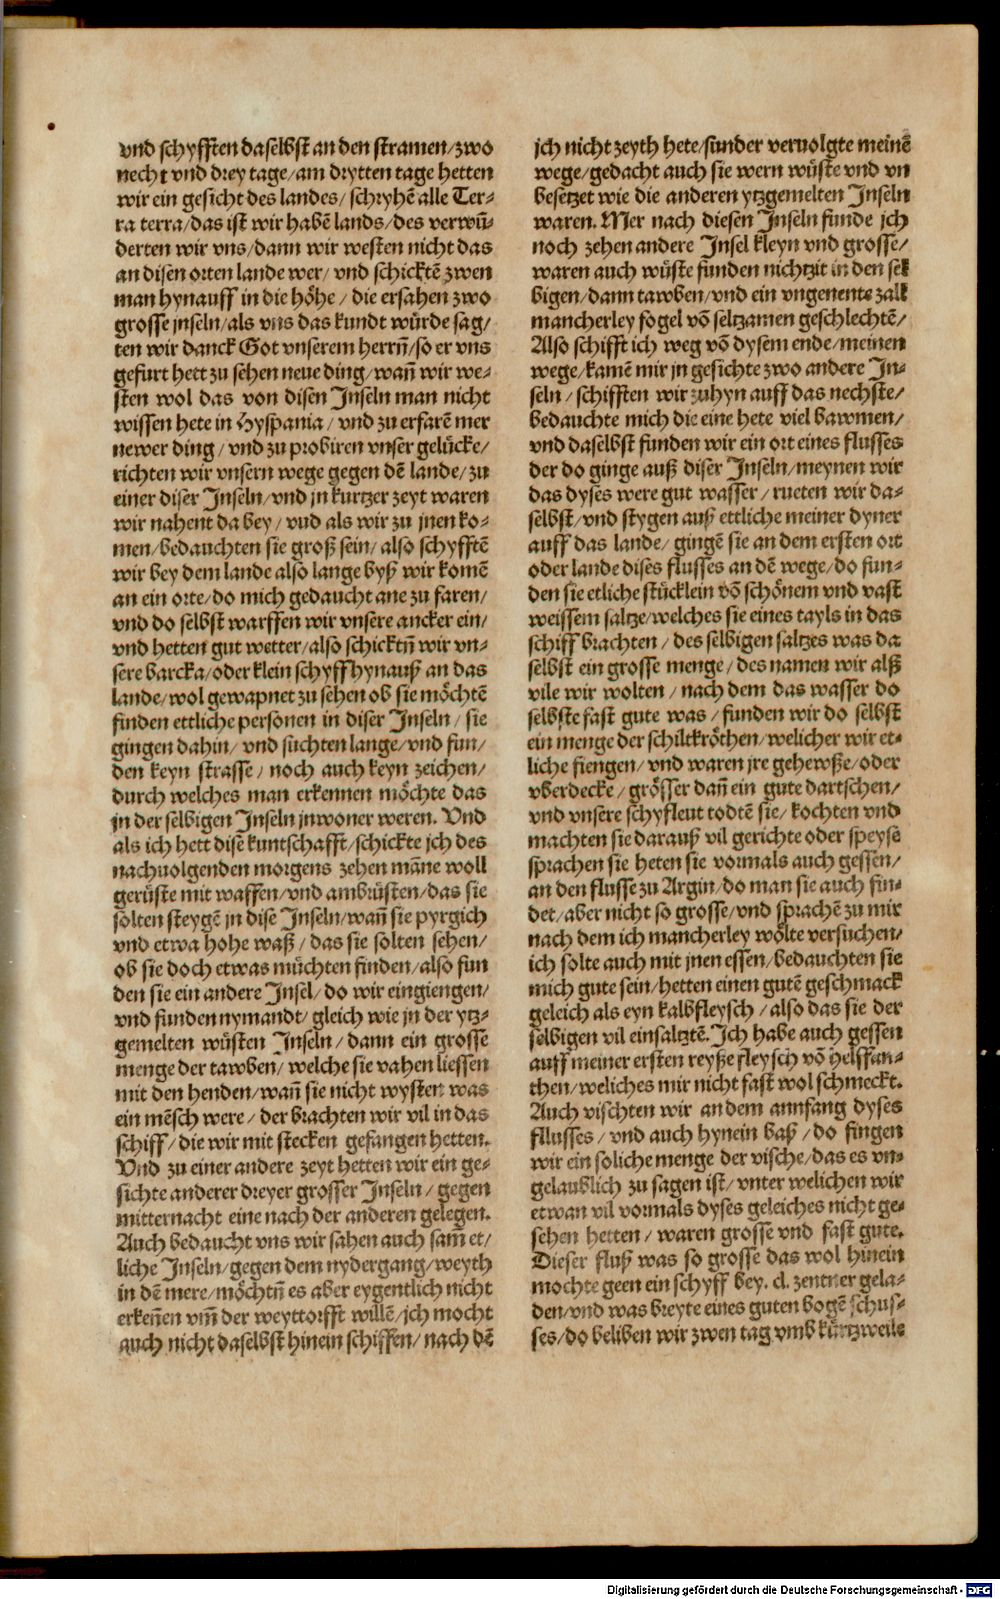 vnd schyfften daselbst an den stramen/zwo
necht vnd drey tage/am drytten tage hetten
wir ein gesicht des landes/ schryhē alle Ter-
ra terra/das ist wir habē lands/des verwū-
derten wir vns/dann wir westen nicht das
an disen orten lande wer/ vnd schicktē zwen
man hynauff in die höhe / die ersahen zwo
grosse jnseln/als vns das kundt würde sag/
ten wir danck Got vnserem herrn̄/so er vns
gefurt hett zu sehen neue ding/wan̄ wir we-
sten wol das von disen Jnseln man nicht
wissen hete in Hyspania / vnd zu erfarē mer
newer ding / vnd zu probiren vnser gelücke/
richten wir vnsern wege gegen dē lande/ zu
einer diser Jnseln/vnd jn kurtzer zeyt waren
wir nahent da bey / vnd als wir zu jnen ko-
men/bedauchten sie groß sein/ also schyfftē
wir bey dem lande also lange byß wir komē
an ein orte/do mich gedaucht ane zu faren/
vnd do selbst warffen wir vnsere ancker ein/
vnd hetten gut wetter/also schicktn̄ wir vn-
sere barcka/oder klein schyff hynauß an das
lande/wol gewapnet zu sehen ob sie möchtē
finden ettliche personen in diser Jnseln/ sie
gingen dahin/ vnd suchten lange/vnd fun/
den keyn strasse / noch auch keyn zeichen/
durch welches man erkennen möchte das
jn der selbigen Jnseln jnwoner weren. Vnd
als ich hett disē kuntschafft/schickte jch des
nachuolgenden morgens zehen māne woll
gerüste mit waffen/vnd ambrüsten/das sie
solten steygē jn dise Jnseln/wan̄ sie pyrgich
vnd etwa hohe waß / das sie solten sehen/
ob sie doch etwas müchten finden/also fun
den sie ein andere Jnsel/ do wir eingiengen/
vnd funden nymandt/ gleich wie jn der ytz-
gemelten wüsten Jnseln/ dann ein grosse
menge der tawben/ welche sie vahen liessen
mit den henden/wan̄ sie nicht wysten was
ein mēsch were / der brachten wir vil in das
schiff / die wir mit stecken gefangen hetten.
Vnd zu einer andere zeyt hetten wir ein ge-
sichte anderer dreyer grosser Jnseln / gegen
mitternacht eine nach der anderen gelegen.
Auch bedaucht vns wir sahen auch sam̄ et/
liche Jnseln/gegen dem nydergang/weyth
in dē mere/möchtn̄ es aber eygentlich nicht
erken̄en vm̄ der weyttorfft willē/jch mocht
auch nicht daselbst hinein schiffen/ nach dē
jch nicht zeyth hete/sunder veruolgte meinē
wege/gedacht auch sie wern wüste vnd vn
besetzet wie die anderen ytzgemelten Jnseln
waren. Mer nach diesen Jnseln funde jch
noch zehen andere Jnsel kleyn vnd grosse/
waren auch wüste funden nichtzit in den sel
bigen/dann tawben/vnd ein vngenente zall
mancherley fogel vō seltzamen geschlechtē/
Also schifft ich weg vō dysem ende/meinen
wege/kamē mir jn gesichte zwo andere Jn-
seln / schifften wir zuhyn auff das nechste/
bedauchte mich die eine hete viel bawmen/
vnd daselbst funden wir ein ort eines flusses
der do ginge auß diser Jnseln/meynen wir
das dyses were gut wasser / rueten wir da-
selbst/vnd stygen auß ettliche meiner dyner
auff das lande/ gingē sie an dem ersten ort
oder lande dises flusses an dē wege/do fun-
den sie etliche stücklein vō schönem vnd vast
weissem saltze/welches sie eines tayls in das
schiff brachten / des selbigen saltzes was da
selbst ein grosse menge / des namen wir alß
vile wir wolten / nach dem das wasser do
selbste fast gute was / funden wir do selbst
ein menge der schiltkröthen/welicher wir et-
liche fiengen/ vnd waren jre gehewße/oder
vberdecke / grösser dan̄ ein gute dartschen/
vnd vnsere schyfleut todtē sie/ kochten vnd
machten sie darauß vil gerichte oder speyse
sprachen sie heten sie vormals auch gessen/
an den flusse zu Argin/do man sie auch fin-
det/aber nicht so grosse/vnd sprachē zu mir
nach dem ich mancherley wölte versuchen/
ich solte auch mit jnen essen/bedauchten sie
mich gute sein/hetten einen gutē geschmack
geleich als eyn kalbfleysch / also das sie der
selbigen vil einsaltztē. Jch habe auch gessen
auff meiner ersten reyße fleysch vō helffan-
then/weliches mir nicht fast wol schmeckt.
Auch vischten wir an dem annfang dyses
fllusses / vnd auch hynein baß / do fingen
wir ein soliche menge der vische/das es vn-
gelaublich zu sagen ist/vnter welichen wir
etwan vil vormals dyses geleiches nicht ge-
sehen hetten / waren grosse vnd fast gute.
Dieser fluß was so grosse das wol hinein
mochte geen ein schyff bey. cl. zentner gela-
den/vnd was breyte eines guten bogē schus-
ses/do beliben wir zwen tag vmb kürtzweile
Digitalisierung gefördert durch die Deutsche Forschungsgemeinschaft - DFG